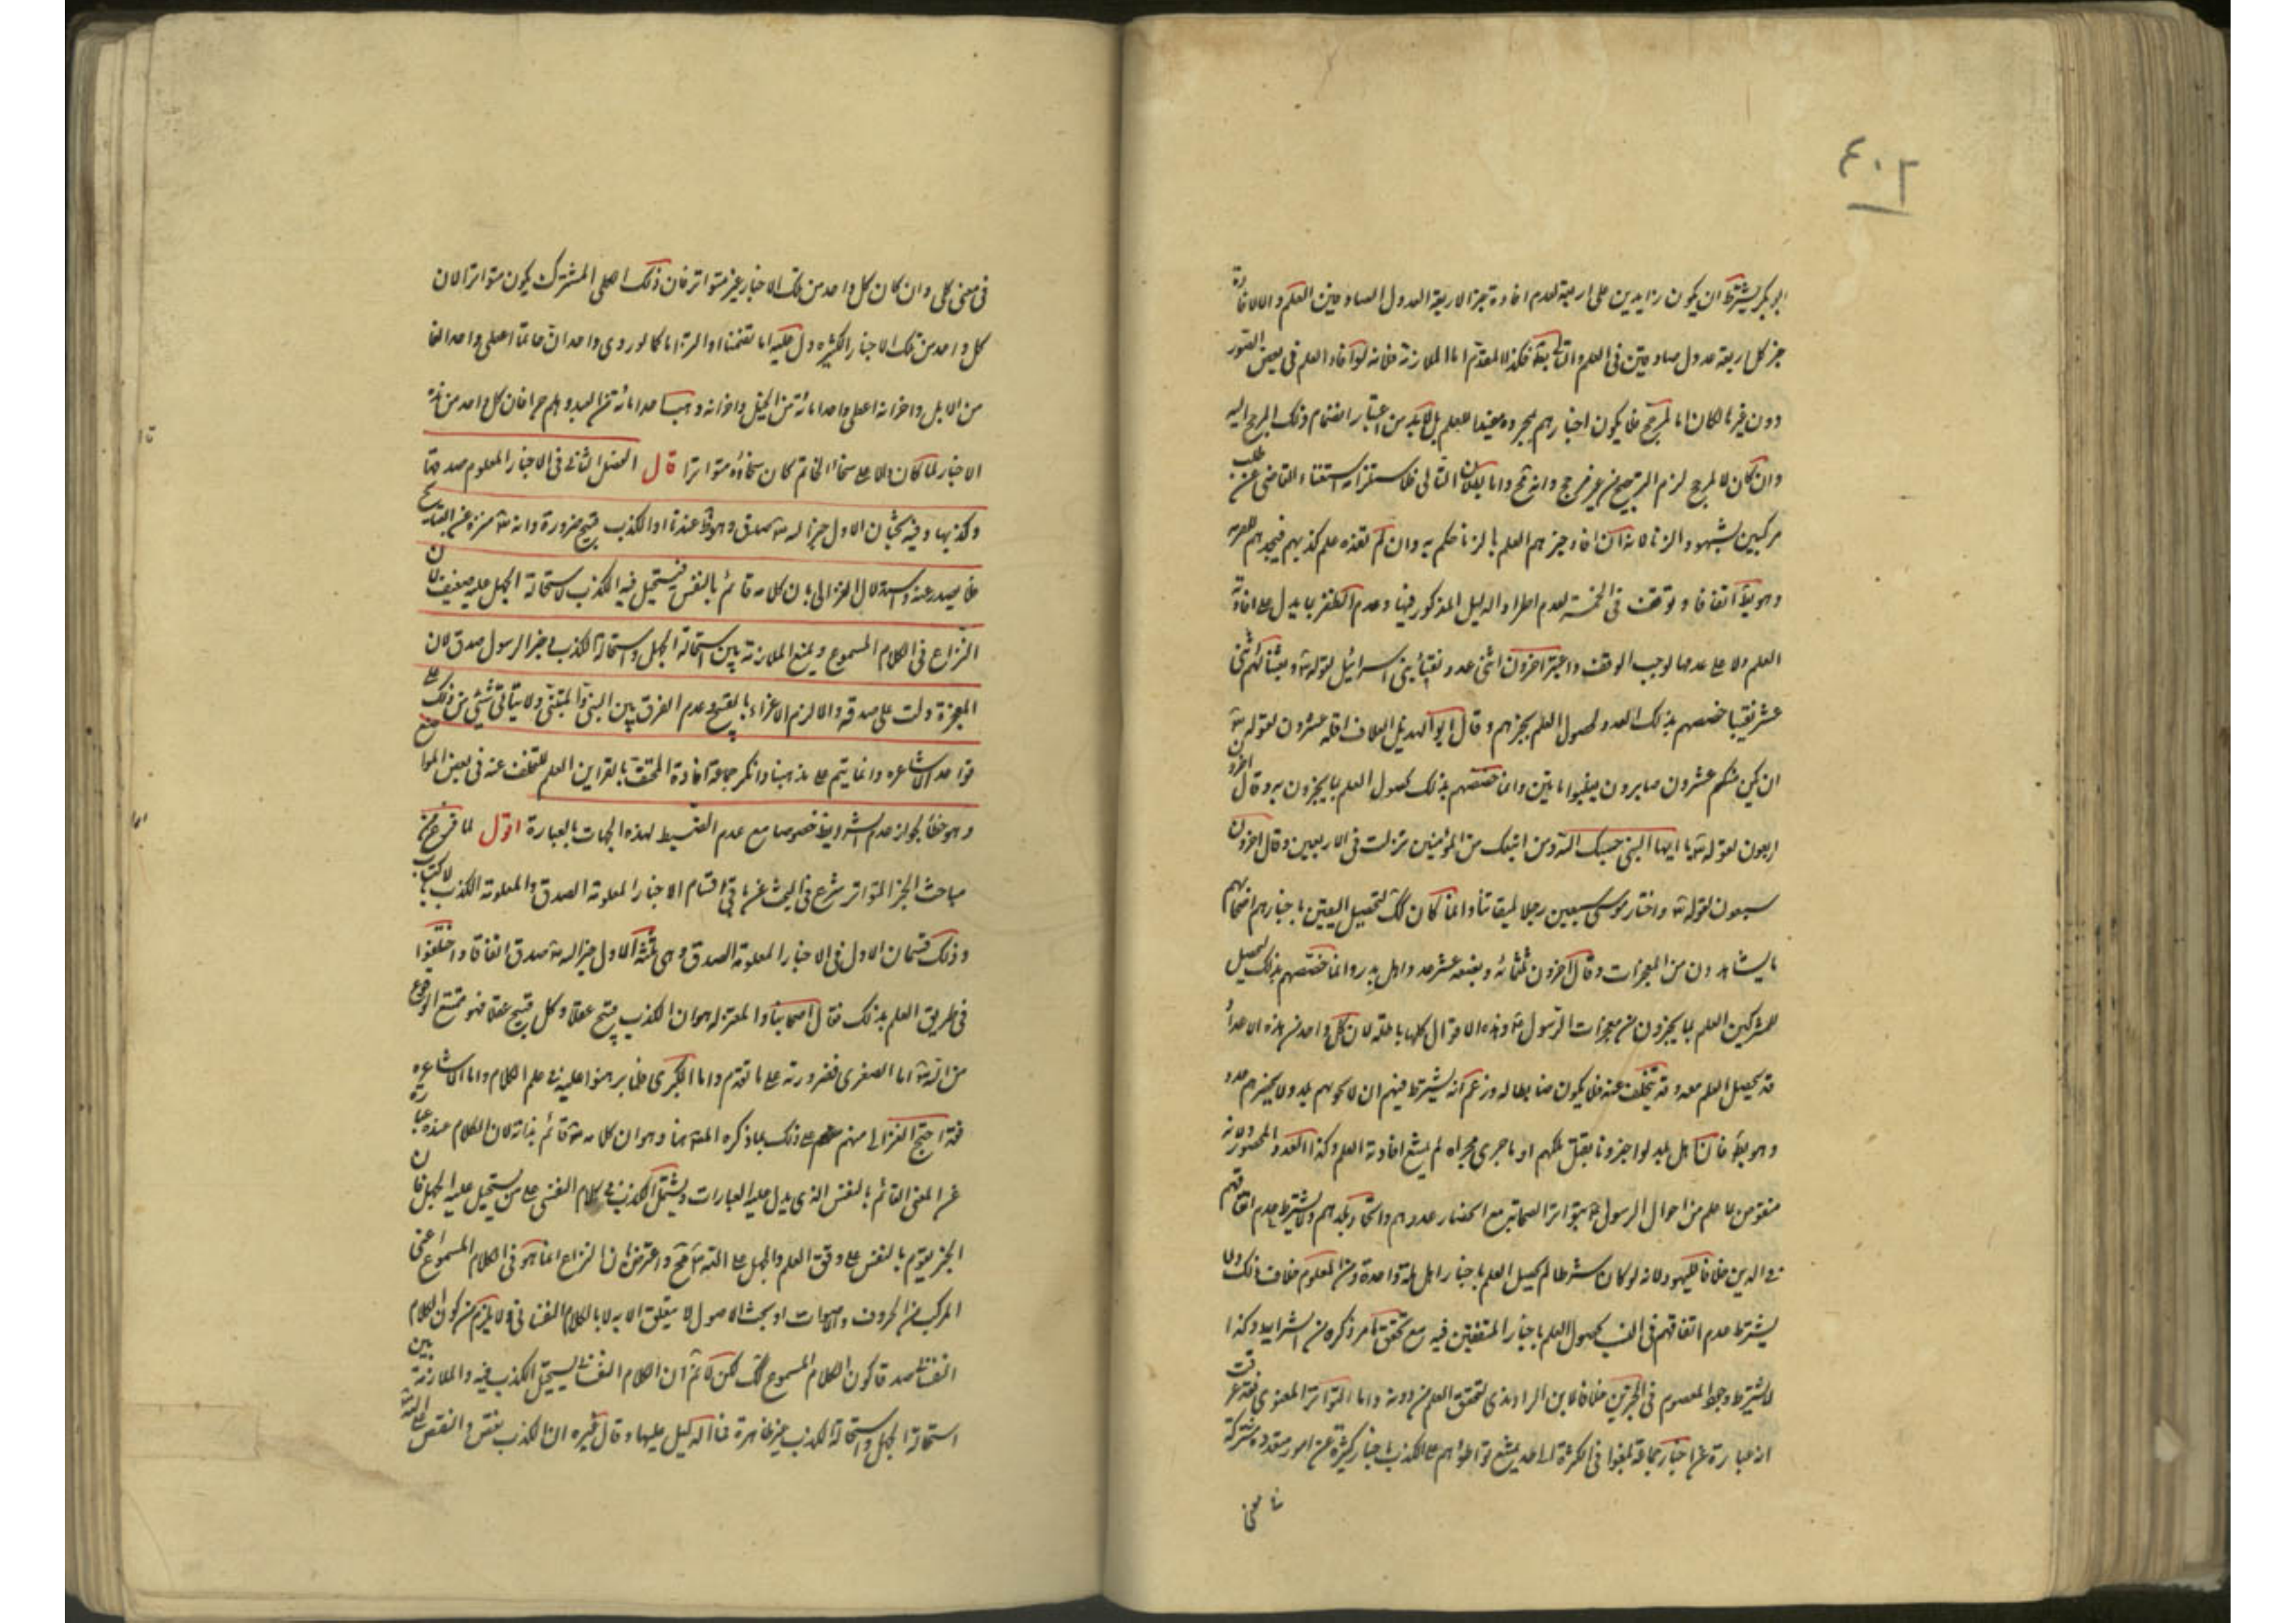 ٤٠٢
ابو بكر يشترط ان يكون زايدين على اربعة لعدم افادة خبر الاربعة العدول الصادقين العلم والا لافادة
خبر كل اربعة عدول صادقين فى العلم والتالى بط فكذا المقدم اما الملازمة فلانه لو افاد العلم فى بعض الصور
دون غيرها لكان اما لمرجح فلا يكون اخبارهم بمجرده مفيدا للعلم بل لابد من اعتبار انضمام ذلك المرجح اليه
وان كان لا لمرجح لزم الترجيح من غير مرجح وانه مح واما بطلان التالى فلاستلزامه استغناء القاضى عن طلب
مزكيين لشهود الزنا لانه ان افاد خبرهم العلم بالزنا حكم به وان لم تفده علم كذبهم فيحدهم للفرية
وهو بط اتفاقا وتوقف فى الخمسة لعدم اطراد الدليل المذكور فيها وعدم الظفر بما يدل على افادة
العلم ولا على عدمها لوجب الوقف واعتبر اخرون اثنى عدد نقباء بنى اسرائيل لقوله تع وبعثنا منهم اثنى
عشر نقيبا خصصهم بذلك العدد لحصول العلم بخبرهم وقال ابو الهذيل العلاف اقله عشرون لقوله تع
ان يكن منكم عشرون صابرون يغلبوا مائتين وانما خصصهم بذلك لحصول العلم بما يخبرون به وقال اخرون
اربعون لقوله تع يا ايها النبى حسبك الله ومن اتبعك من المؤمنين نزلت فى الاربعين وقال اخرون
سبعون لقوله تع واختار موسى سبعين رجلا لميقاتنا وانما كان كك لتحصيل اليقين باخبارهم اصحابهم
ما يشاهدون من المعجزات وقال اخرون ثلثمائه وبضعه عشر عدد اهل بدر وانما خصصهم بذلك ليحصل
للمشركين العلم بما يخبرون من معجزات الرسول وهذه الاقوال كلها باطلة لان كل واحد من هذه الاعداد
قد يحصل العلم معه وقد يتخلف عنه فلا يكون ضابطا له وزعم انه يشترط فيهم ان لا يحويهم بلد ولا يحصرهم عدد
وهو بط فان اهل بلد لو اخبرونا بقتل ملكهم او ما جرى مجراه لم يمتنع افادته العلم وكذا العدد المحصور ولانه
منقوض بما علم من احوال الرسول بتواتر الصحابة مع انحصار عددهم واتحاد بلدهم ولا يشترط عدم اتفاقهم
فى الدين خلافا لليهود لانه لو كان شرطا لم يحصل العلم باخبار اهل ملة واحدة ومن المعلوم خلاف ذلك ولا
يشترط عدم اتفاقهم فى النسب لحصول العلم باخبار المتفقين فيه مع تحقق ما مر ذكره من الشرايط وكذا
لا يشترط وجود المعصوم فى المخبرين خلافا لابن الراوندى لتحقق العلم من دونه واما التواتر المعنوى فقد عرفت
انه عبارة عن اخبار جماعة بلغوا فى الكثرة الى حد يمتنع تواطؤهم على الكذب باخبار كثيرة عن امور متعددة مشتركة
فى معنى
فى معنى كلى وان كان كل واحد من تلك الاخبار غير متواتر فان ذلك الكلى المشترك يكون متواترا لان
كل واحد من تلك الاخبار الكثيره دل عليه اما تضمنا او التزاما كما لو روى واحد ان حاتما اعطى واحدا الفا
من الابل واخر انه اعطى واحدا مائة من الخيل واخر انه وهب واحدا مائة من العبيد وهلم جرا فان كل واحد من هذه
الاخبار لما كان دالا على سخاء الحاتم كان سخاؤه متواترا قال الفصل الثانى فى الاخبار المعلوم صدقها
وكذبها وفيه بحثان الاول خبر الله تع صدق وهو ظ عندنا اذ الكذب قبيح ضرورة وانه تع منزه عن القبايح
فلا يصدر عنه واستدلال الغزالى بان كلامه قائم بالنفس فيستحيل فيه الكذب لاستحالة الجهل عليه ضعيف لان
النزاع فى الكلام المسموع ويمنع الملازمة بين استحالة الجهل واستحالة الكذب وخبر الرسول صدق لان
المعجزة دلت على صدقه والا لزم الاغراء بالقبيح وعدم الفرق بين النبى والمتنبى ولا يتأتى شئ من ذلك على
قواعد الاشاعره وانما يتم على مذهبنا وانكر جماعة افادة المحتف بالقراين العلم للتخلف عنه فى بعض المواضع
وهو خطأ لجواز عدم الشرايط خصوصا مع عدم الضبط لهذه الجهات بالعبارة اقول لما فرغ من
مباحث الخبر المتواتر شرع فى البحث عن باقى اقسام الاخبار المعلومة الصدق والمعلومة الكذب بالاكتساب
وذلك قسمان الاول فى الاخبار المعلومة الصدق وهى ثلثه الاول خبر الله تع صدق اتفاقا واختلفوا
فى طريق العلم بذلك فقال اصحابنا والمعتزله هو ان الكذب قبيح عقلا وكل قبيح عقلا فهو ممتنع الوقوع
من الله تع اما الصغرى فضرورية على ما تقدم واما الكبرى فلما برهنوا عليه فى علم الكلام واما الاشاعره
فقد احتج الغزالى منهم على ذلك بما ذكره المص هنا وهو ان كلامه تع قائم بذاته لان الكلام عنده عبارة
عن المعنى القائم بالنفس الذى يدل عليه العبارات ويستحيل الكذب فى كلام النفس على من يستحيل عليه الجهل فان
الخبر يقوم بالنفس على وفق العلم والجهل على الله تع مح واعترض بان النزاع انما هو فى الكلام المسموع اعنى
المركب من الحروف والاصوات اذ بحث الاصول لا يتعلق الا به لا بالكلام النفسانى ولا يلزم من كون الكلام
النفسانى صدقا كون الكلام المسموع كك لكن لا نم ان الكلام النفسانى يستحيل الكذب فيه والملازمة بين
استحالة الجهل واستحالة الكذب غير ظاهرة فما الدليل عليها وقال غيره ان الكذب نقص والنقص على الله